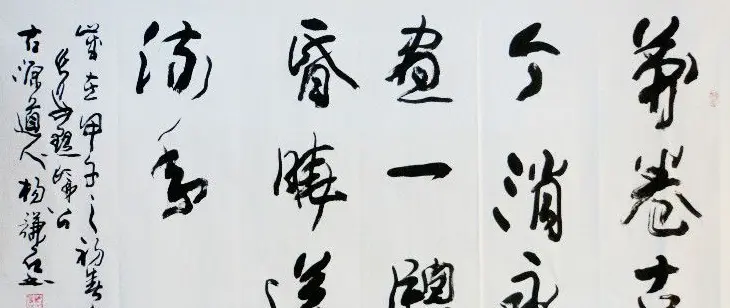 萬卷古
今消永
晝一牕
昏曉送
流年
歲在甲子之初春
古源道人楊謙